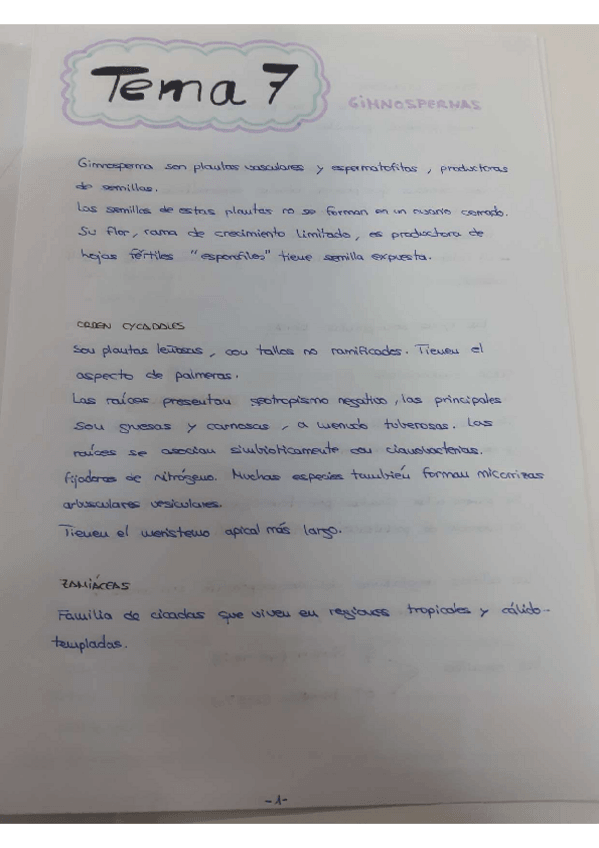 Tema 7
GIMNOSPERMAS
Gimnosperma son plantas vasculares y espermatofitas, productoras
de semillas.
Las semillas de estas plantas no se forman en un ovario cerrado.
Su flor, rama de crecimiento limitado, es productora de
hojas fértiles "esporofilos" tiene semilla expuesta.
ORDEN CYCADALES
Son plantas leñosas, con tallos no ramificados. Tienen el
aspecto de palmeras.
Las raíces presentan geotropismo negativo, las principales
son gruesas y carnosas, a menudo tuberosas. Las
raíces se asocian simbioticamente con cianobacterias.
fijadoras de nitrógeno. Muchas especies también forman micorrizas
arbusculares vesiculares.
Tienen el meristemo apical más largo.
ZAMIÁCEAS
Familia de cicadas que viven en regiones tropicales y cálido-
templadas.
-1-